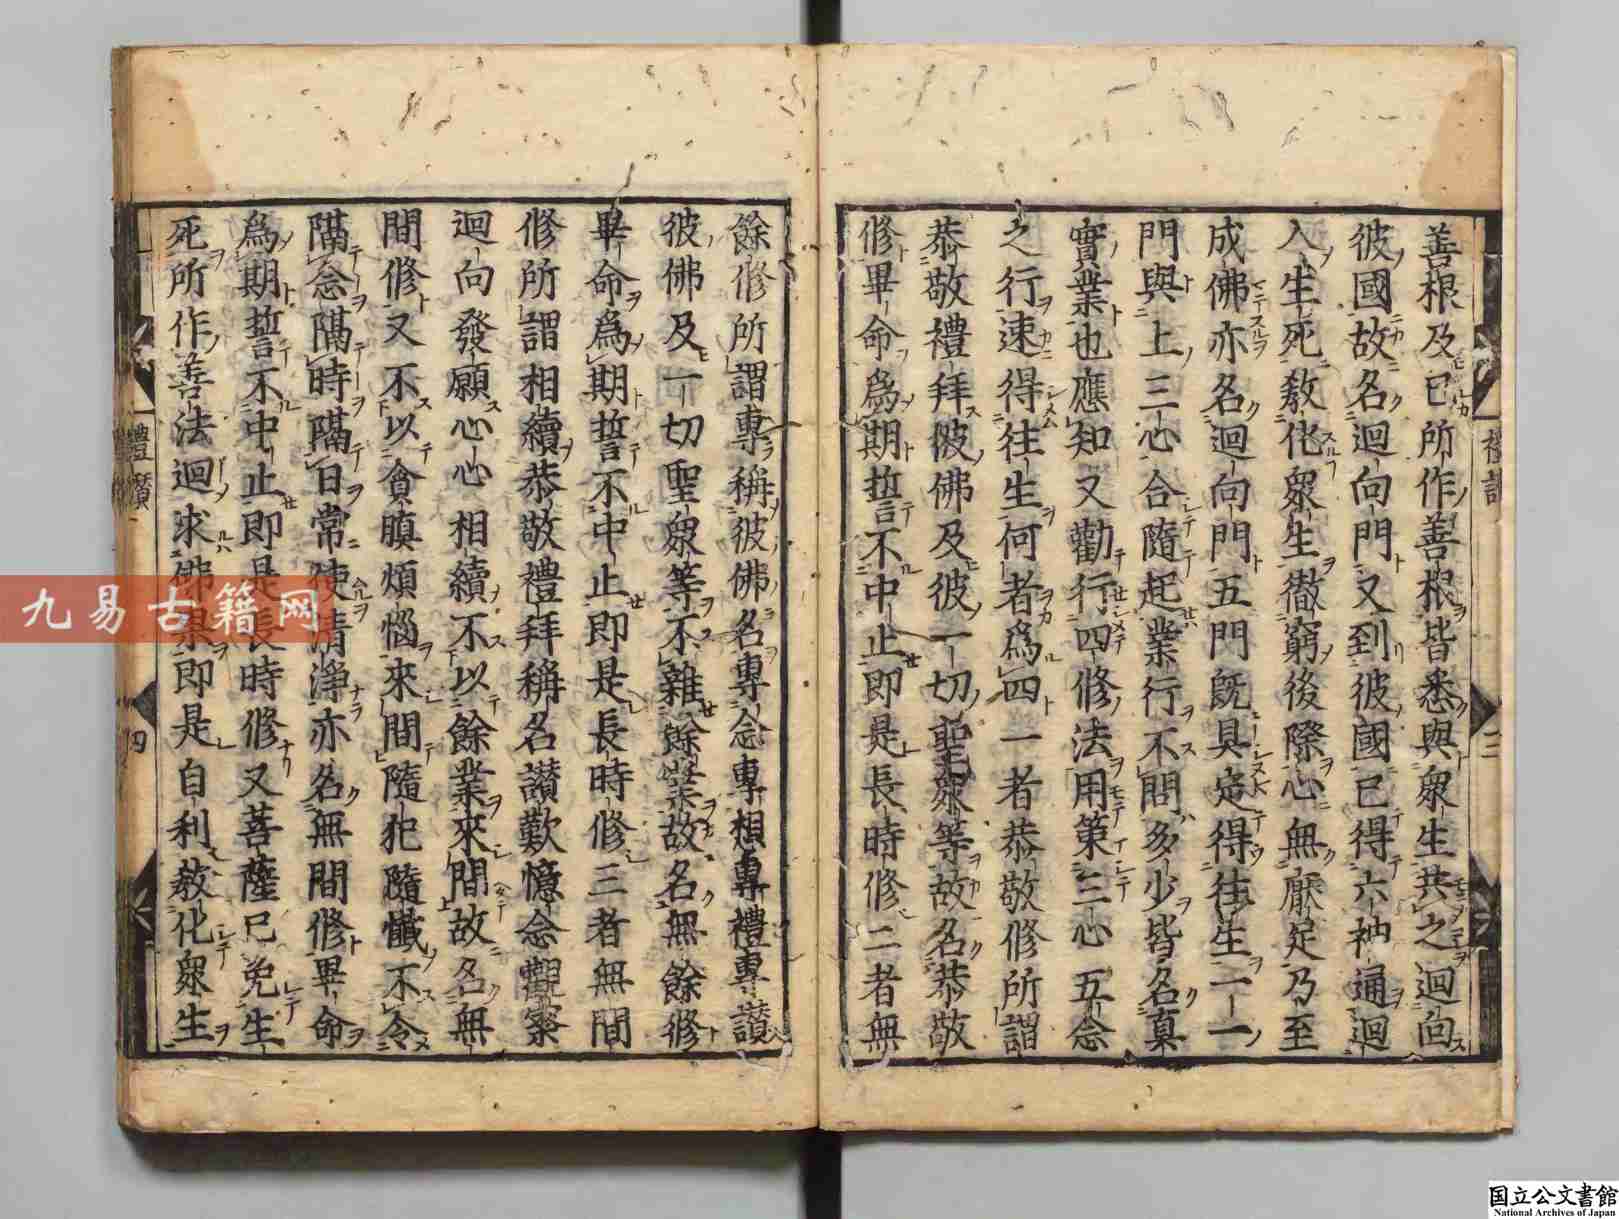 善根及已所作善根皆悉與衆生共之迴向
彼國故名迴向門又到彼國已得六神通迴
入生死敎化衆生徹窮後際心無厭足乃至
成佛亦名迴向門五門旣具定得往生一一
門與上三心合隨起業行不問多少皆名真
實業也應知又勸行四修法用策三心五念
之行速得往生何者爲四一者恭敬修所謂
恭敬禮拜彼佛及彼一切聖衆等故名恭敬
修畢命爲期誓不中止即是長時修二者無
餘修所謂專稱彼佛名專念專想專禮專讃
彼佛及一切聖衆等不雜餘業故名無餘修
畢命爲期誓不中止即是長時修三者無間
修所謂相續恭敬禮拜稱名讃歎憶念觀察
迴向發願心心相續不以餘業來間故名無
間修又不以貪瞋煩惱來間隨犯隨懺不令
隔念隔時隔日常使清淨亦名無間修畢命
爲期誓不中止即是長時修又菩薩已免生
死所作善法迴求佛果即是自利敎化衆生
禮讃
三
禮讃
四
九易古籍网
国立公文書館
National Archives of Japan